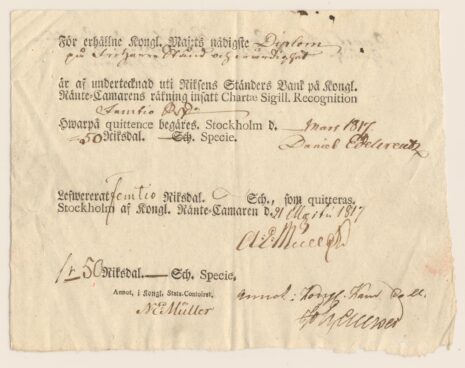 För erhållne Kongl. Maj:ts nådigste Diplom
på Friherre Stånd och värdighet
är af undertecknad uti Riksens Ständers Bank på Kongl.
Ränte-Camarens räkning insatt Chartæ Sigill. Recognition
Femtio
Hwarpå quittence begäres. Stockholm d. Mars 1817
50 Riksdal. — Sch. Specie. Daniel Edelcreutz
Lefwererat femtio Riksdal. Sch., som quitteras.
Stockholm af Kongl. Ränte-Camaren d. 21 1817
50 Riksdal. — Sch. Specie.
Annot. i Kongl. Stats-Contoiret.
Annot: Kongl.
N E Müller